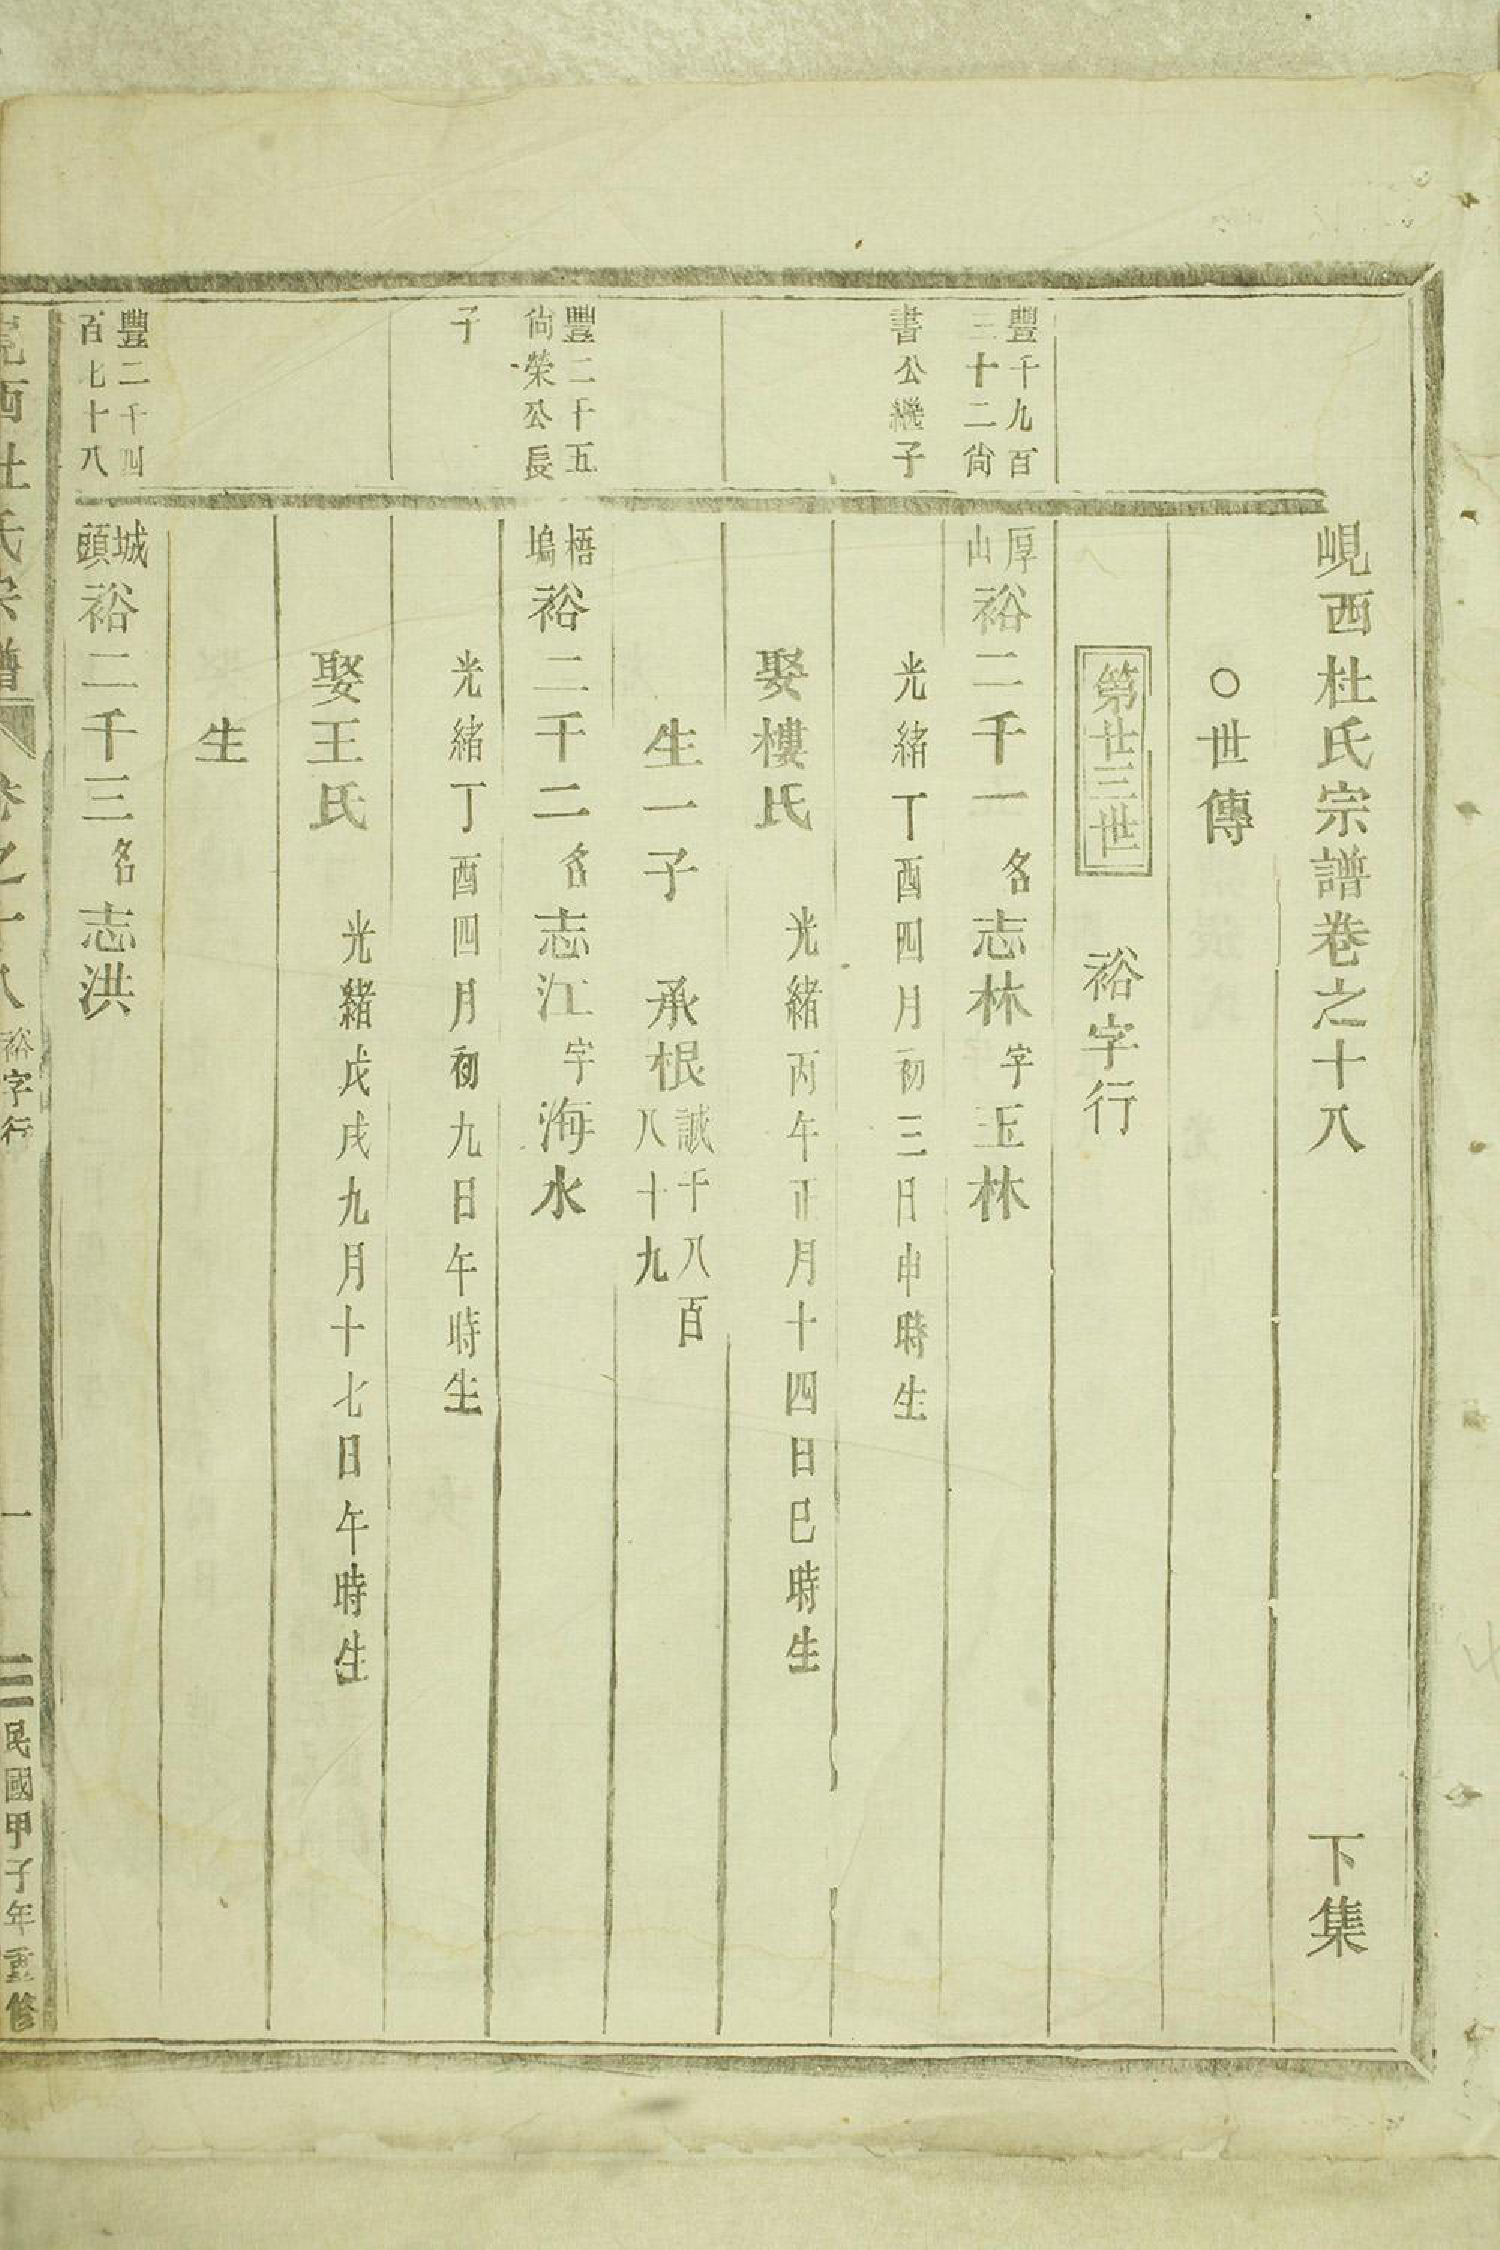 峴西杜氏宗譜卷之十八 下集
○世傳
第廿三世 裕字行
豐千九百
三十二尙
書公繼子
厚山 裕二千一 名志林 字玉林
光緒丁酉四月初三日申時生
娶樓氏 光緒丙午正月十四日巳時生
生一子 承根 誠千八百八十九
豐二千五
尙榮公長
子
梧塢 裕二千二 名志江 字海水
光緒丁酉四月初九日午時生
娶王氏 光緒戊戌九月十七日午時生
生
豐二千四
百七十八
城頭 裕二千三 名志洪
峴西杜氏宗譜 卷之十八 裕字行 一 民國甲子年重修